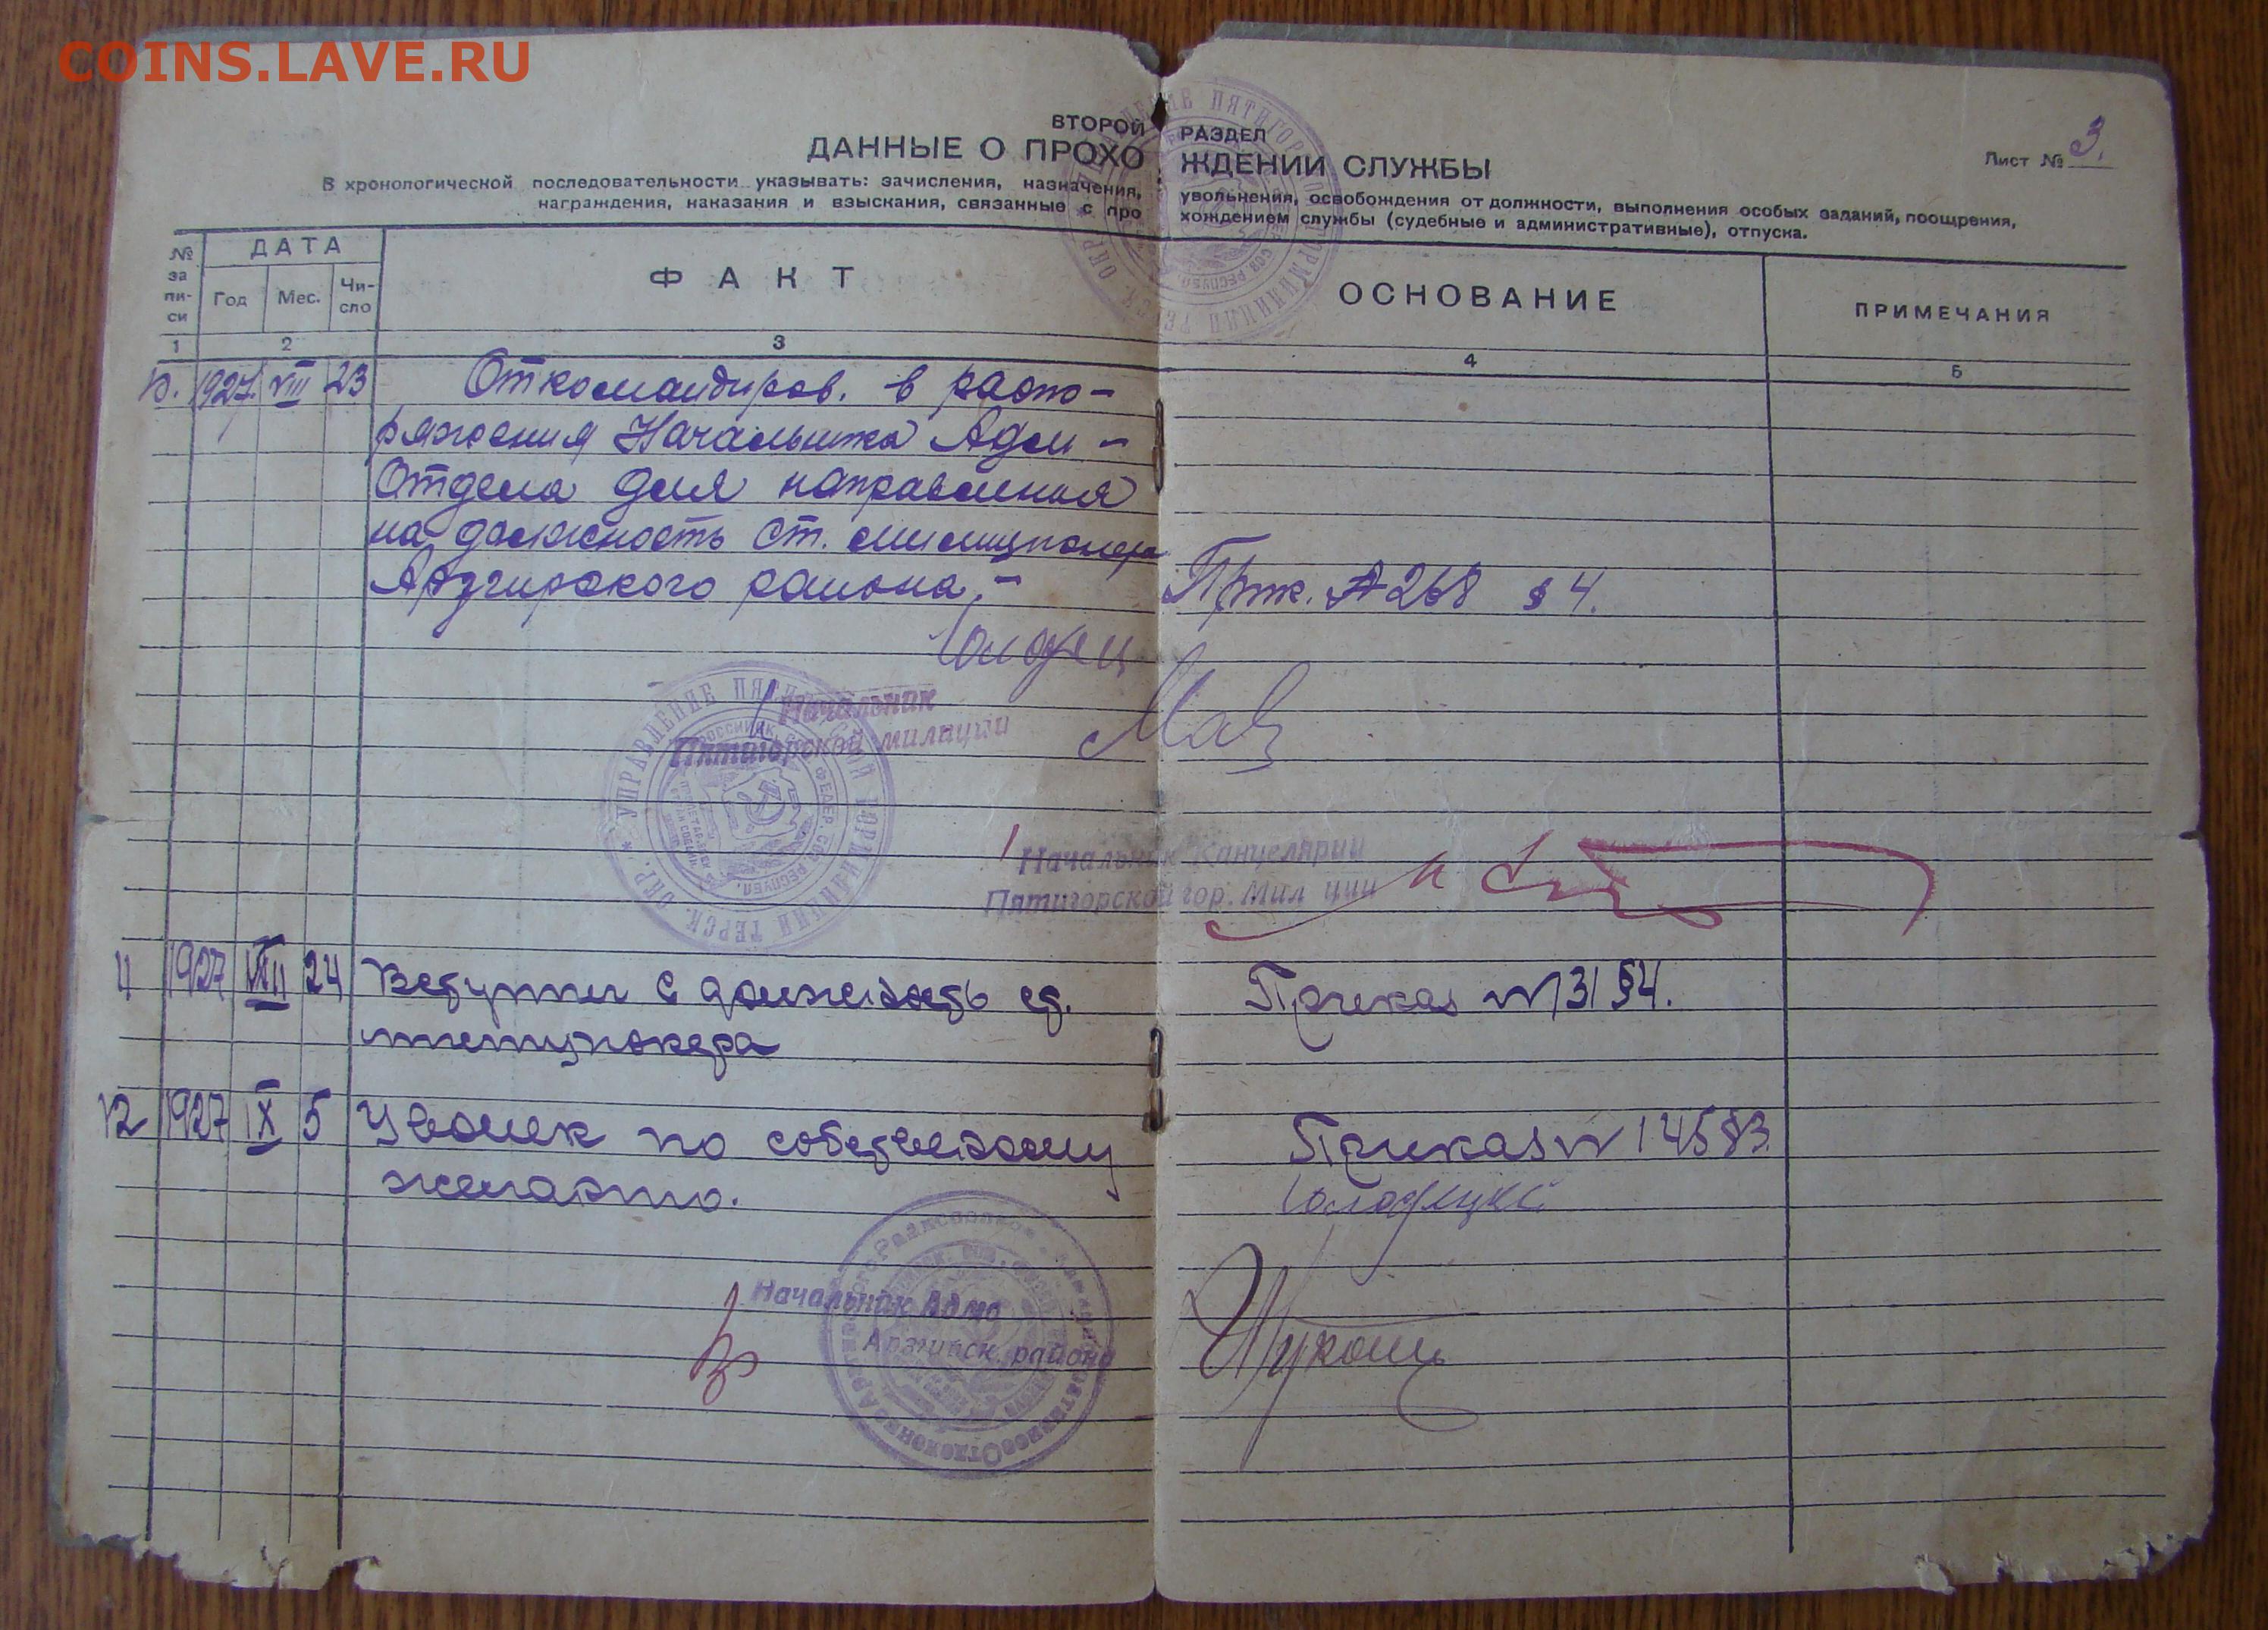 COINS.LAVE.RU
ВТОРОЙ РАЗДЕЛ
ДАННЫЕ О ПРОХОЖДЕНИИ СЛУЖБЫ
Лист № 3.
В хронологической последовательности указывать: зачисления, назначения, увольнения, освобождения от должности, выполнения особых заданий, поощрения,
награждения, наказания и взыскания, связанные с прохождением службы (судебные и административные), отпуска.
№ записи
ДАТА
Год Мес. Число
ФАКТ
ОСНОВАНИЕ
ПРИМЕЧАНИЯ
1 2 3 4 5
10. 1927. VIII 23 Откомандиров. в распо-
ряжения Начальника Адм-
Отдела для направления
на должность Ст. милиционера
Арзгирского района,- Прик. № 268 § 4.
Начальник
Пятигорской милиции
УПРАВЛЕНИЕ ПЯТИГОРСКОЙ ГОРМИЛИЦИИ ТЕРСК. ОКР.
Начальник Канцелярии
Пятигорской гор. Милиции
11 1927 VIII 24 Вступил в должность ст. Приказ №131 §4.
милиционера
12 1927 IX 5 Уволен по собственному Приказ № 145 §3.
желанию.
Начальник Адмо
Арзгирск. района